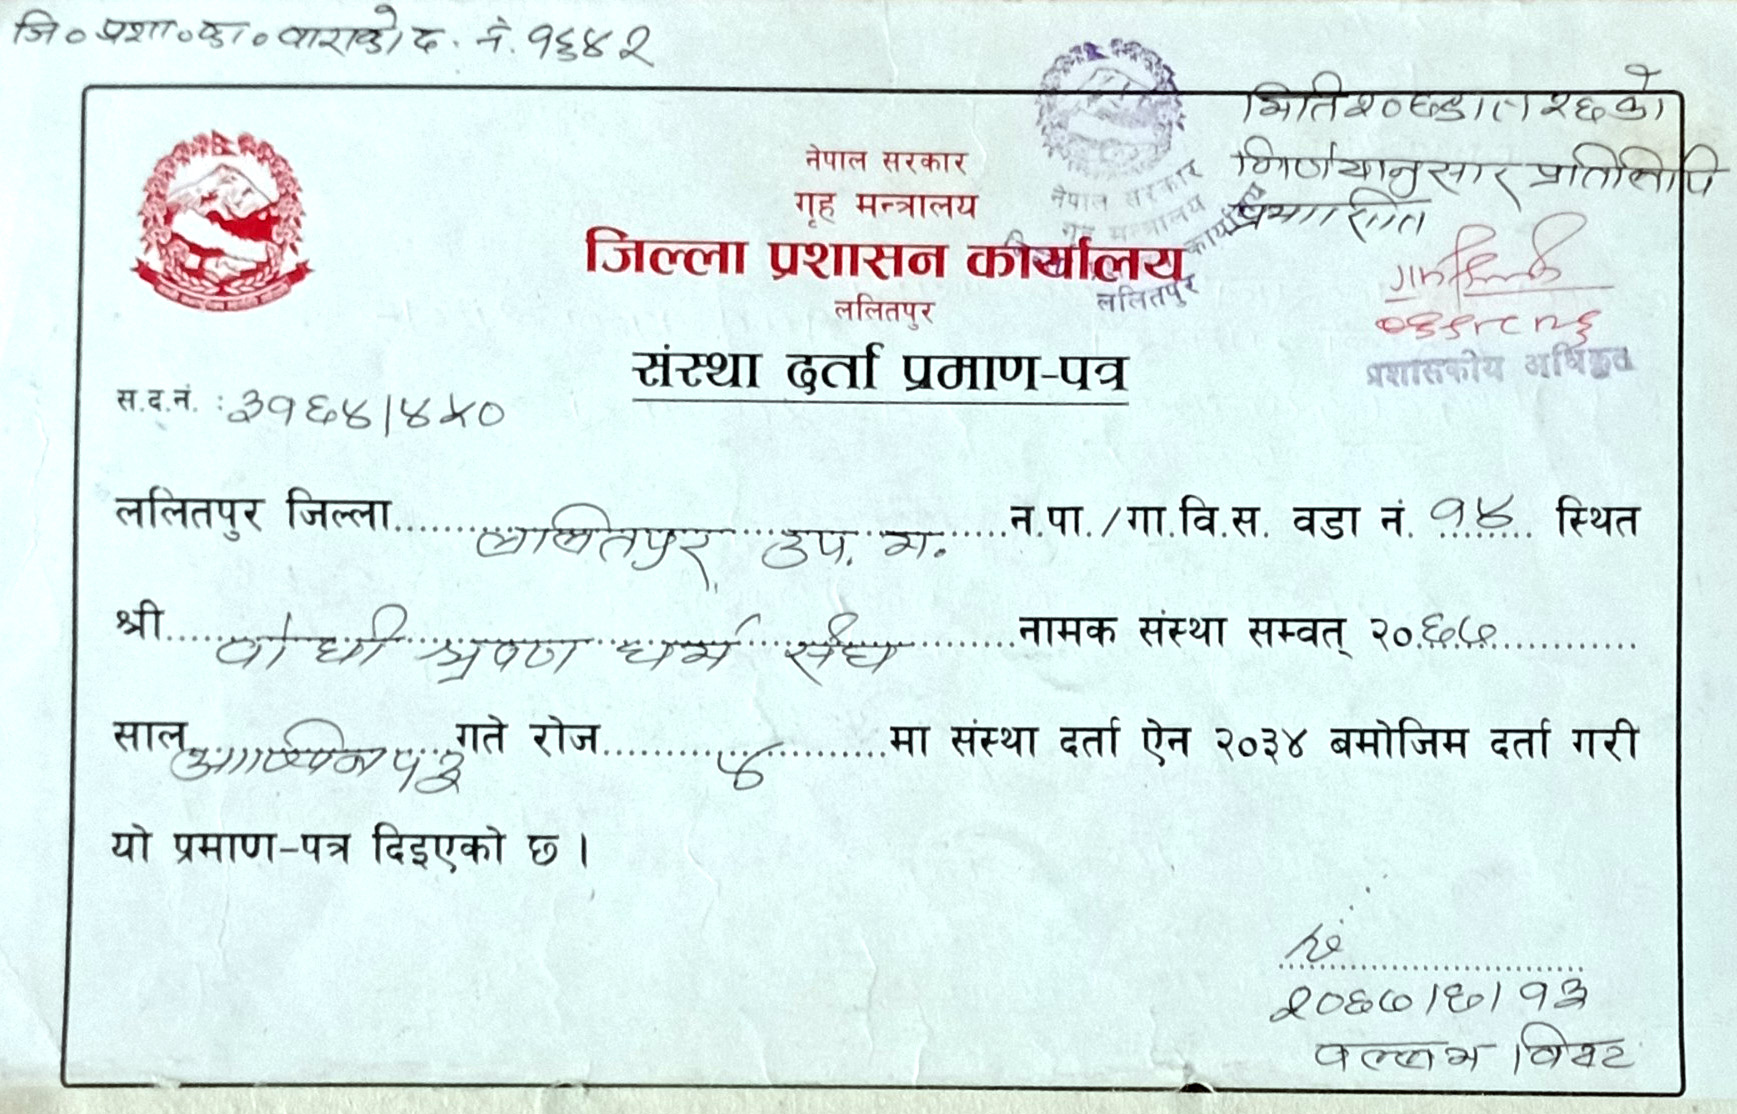 जि०प्रशा०का०वाराको द. नं. १६४२
मिति २०६७।५।२६ को
निर्णयानुसार प्रतिलिपि
नेपाल सरकार
गृह मन्त्रालय
जिल्ला प्रशासन कार्यालय
ललितपुर
नेपाल सरकार
गृह मन्त्रालय
कार्यालय
ललितपुर
प्रशासकीय अधिकृत
संस्था दर्ता प्रमाण-पत्र
स.द.नं. : ३१६४/४५०
ललितपुर जिल्ला.......ललितपुर उप. म........न.पा./गा.वि.स. वडा नं. १४.... स्थित
श्री.......बोधी श्रवण धर्म संघ.......नामक संस्था सम्वत् २०६७.......
साल आश्विन १३ गते रोज.......४.......मा संस्था दर्ता ऐन २०३४ बमोजिम दर्ता गरी
यो प्रमाण-पत्र दिइएको छ ।
२०६७/६/१३
वल्लभ विष्ट